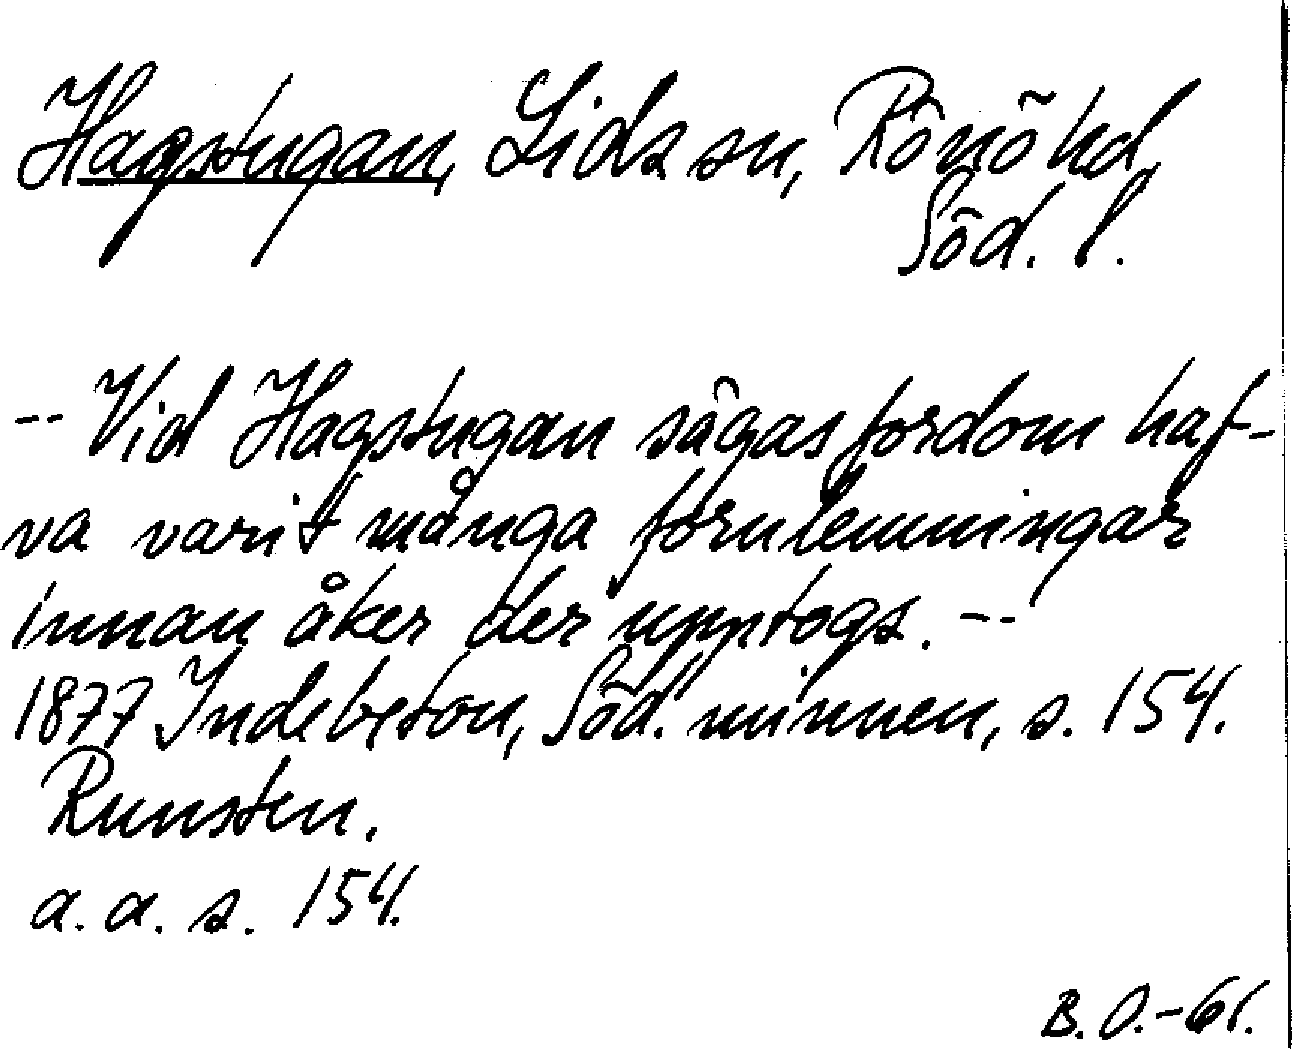 Hagstugan, Lids sn, Rönö hd,
Söd. l.
-- Vid Hagstugan sägas fordom haf-
va varit många fornlemningar
innan åker der upptogs. --
1877 Indebetou, Söd. minnen, s. 154.
Runsten.
a. a. s. 154.
B. O. - 61.